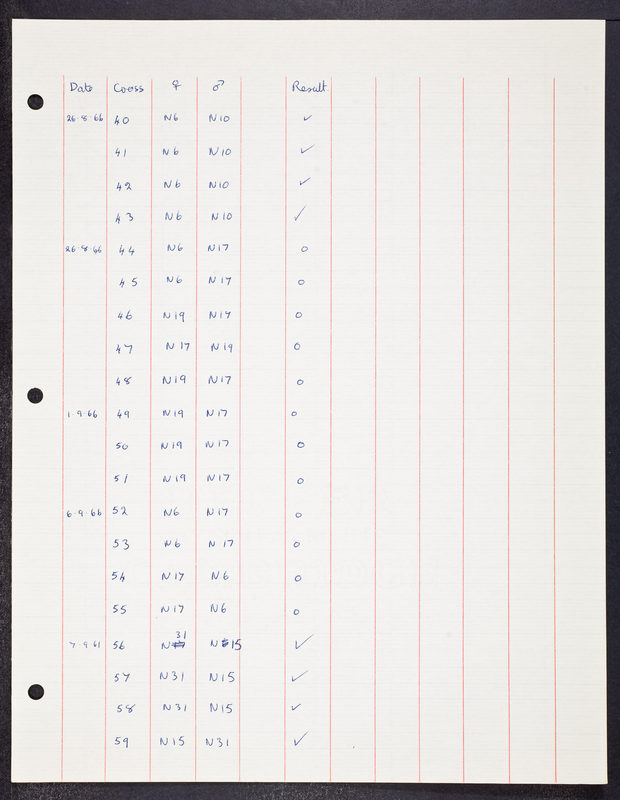 Date Cross ♀ ♂ Result
26·8·66 40 N6 N10 ✓
41 N6 N10 ✓
42 N6 N10 ✓
43 N6 N10 ✓
26·8·66 44 N6 N17 0
45 N6 N17 0
46 N19 N17 0
47 N17 N19 0
48 N19 N17 0
1·9·66 49 N19 N17 0
50 N19 N17 0
51 N19 N17 0
6·9·66 52 N6 N17 0
53 N6 N17 0
54 N17 N6 0
55 N17 N6 0
7·9·61 56 N31 N15 ✓
57 N31 N15 ✓
58 N31 N15 ✓
59 N15 N31 ✓